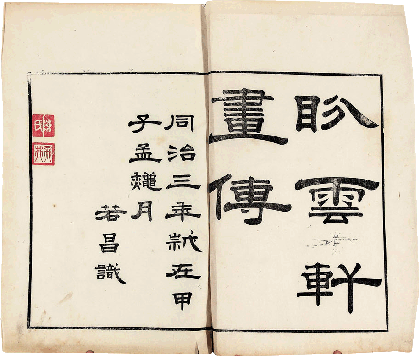 盼雲軒
畫傳
同治三年在甲
子孟龝月
若昌識